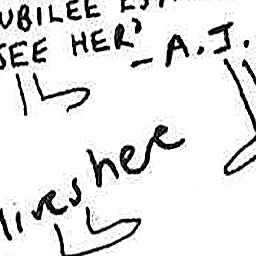 UBILEE
SEE HER'
- A.J.
lives here